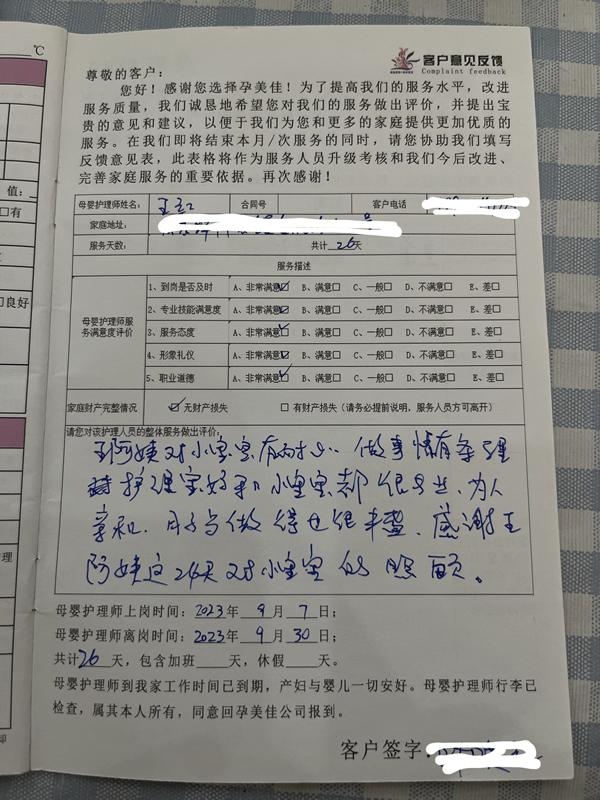 ℃
客户意见反馈
Complaint feedback
尊敬的客户：
您好！感谢您选择孕美佳！为了提高我们的服务水平，改进
服务质量，我们诚恳地希望您对我们的服务做出评价，并提出宝
贵的意见和建议，以便于我们为您和更多的家庭提供更加优质的
服务。在我们即将结束本月/次服务的同时，请您协助我们填写
反馈意见表，此表格将作为服务人员升级考核和我们今后改进、
完善家庭服务的重要依据。再次感谢！
母婴护理师姓名： 王红 合同号 客户电话
家庭地址：
服务天数： 共计 26 天
服务描述
母婴护理师服务满意度评价
1、到岗是否及时 A、非常满意☑ B、满意□ C、一般□ D、不满意□ E、差□
2、专业技能满意度 A、非常满意☑ B、满意□ C、一般□ D、不满意□ E、差□
3、服务态度 A、非常满意☑ B、满意□ C、一般□ D、不满意□ E、差□
4、形象礼仪 A、非常满意☑ B、满意□ C、一般□ D、不满意□ E、差□
5、职业道德 A、非常满意☑ B、满意□ C、一般□ D、不满意□ E、差□
家庭财产完整情况 ☑ 无财产损失 □ 有财产损失（请务必提前说明，服务人员方可离开）
请您对该护理人员的整体服务做出评价：
王阿姨对小宝宝有耐心 做事情有条理
护理宝妈和小宝宝都很专业、为人
亲和、月子餐做得也很丰盛、感谢王
阿姨这26天对小宝宝的照顾。
母婴护理师上岗时间：2023年 9 月 7 日；
母婴护理师离岗时间：2023年 9 月 30 日；
共计26天，包含加班 天，休假 天。
母婴护理师到我家工作时间已到期，产妇与婴儿一切安好。母婴护理师行李已
检查，属其本人所有，同意回孕美佳公司报到。
客户签字：
值：
□有
良好
理